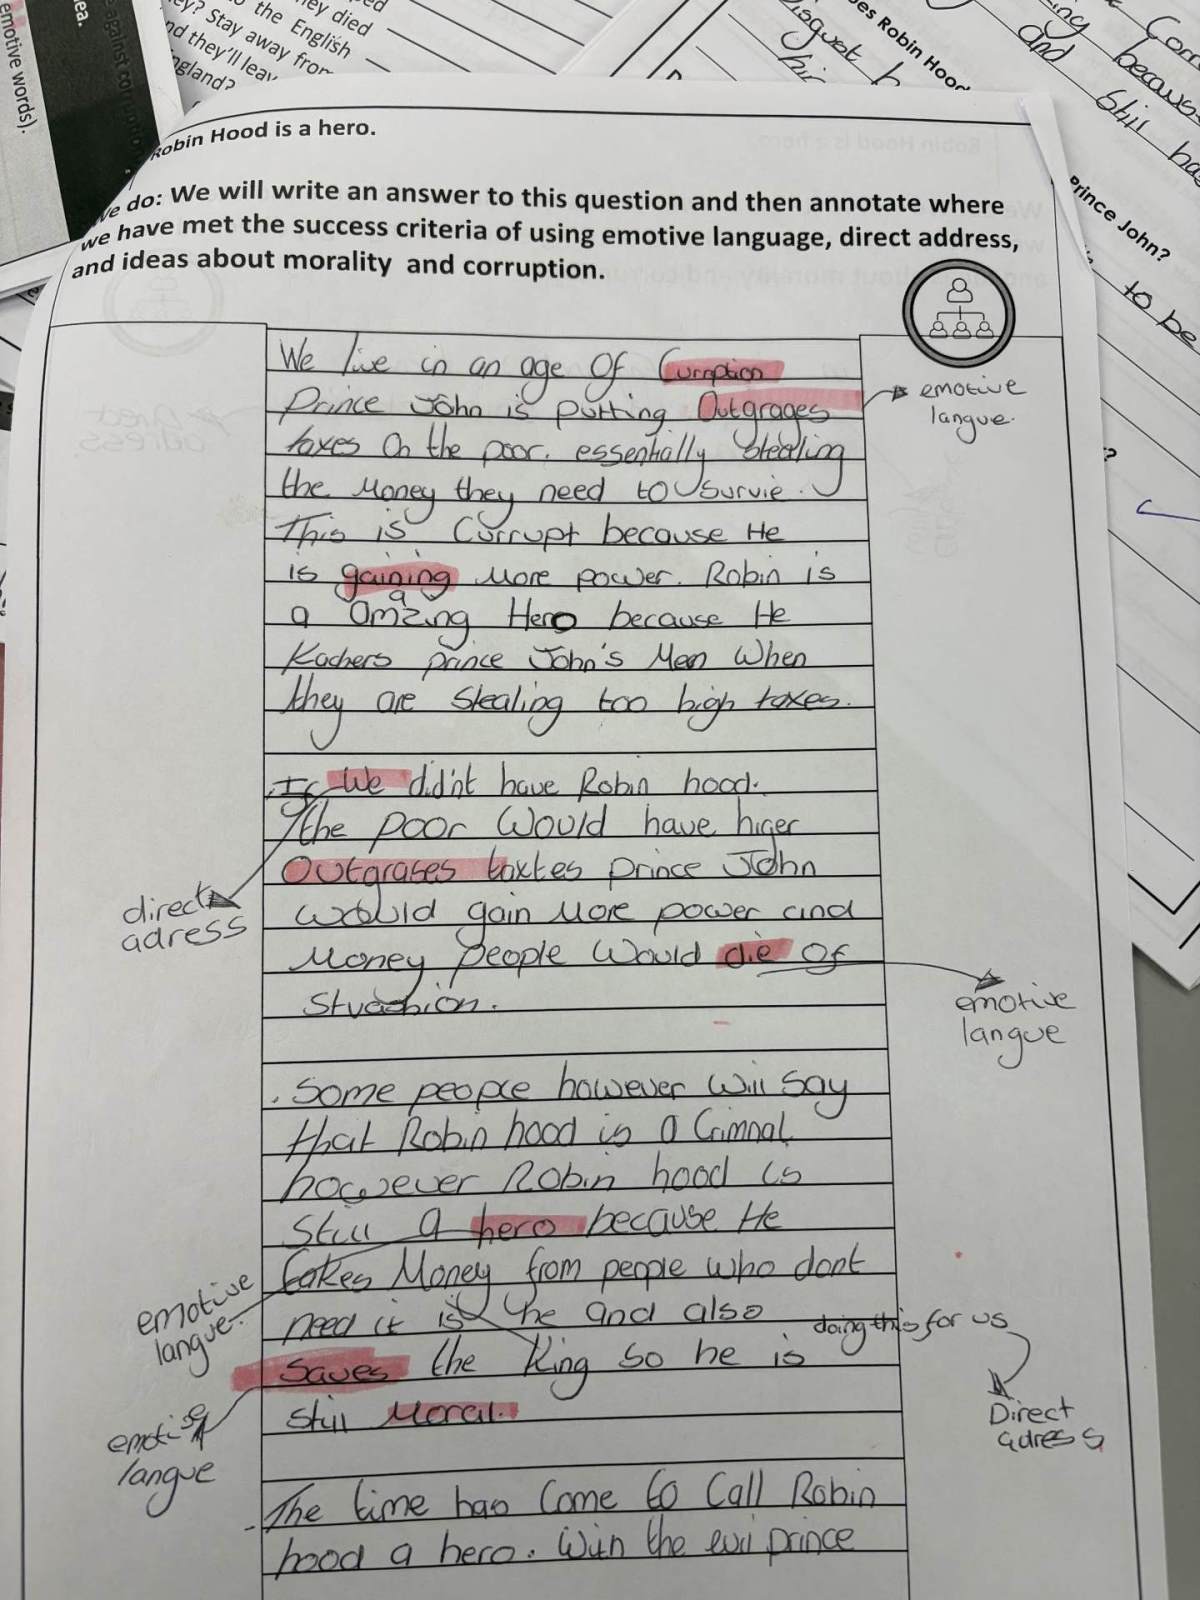 emotive words).
ea.
against corruption
ey? Stay away from
nd they'll leav
ngland?
the English
ey died
oes Robin Hood
Prince John?
to be
because
and still ha
?
Robin Hood is a hero.
We do: We will write an answer to this question and then annotate where
we have met the success criteria of using emotive language, direct address,
and ideas about morality and corruption.
We live in an age Of Curroption
Prince John is putting Outgrages
taxes On the poor. essentially stealing
the Money they need to survie.
This is Currupt because He
is gaining More power. Robin is
a amazing Hero because He
Kachers prince John's Men When
they are stealing too high taxes.
emotive
langue.
If We didn't have Robin hood.
the poor Would have higer
Outgrases taxtes prince John
would gain More power and
Money people Would die Of
Stuachion.
direct
adress
emotive
langue
Some people however Will say
that Robin hood is a Crimnal
however Robin hood is
Still a hero because He
takes Money from people who dont
need it is the and also
saves the King so he is doing this for us
still Moral.
emotive
langue.
emotive
langue
Direct
adress
The time has Come to Call Robin
hood a hero. With the evil prince